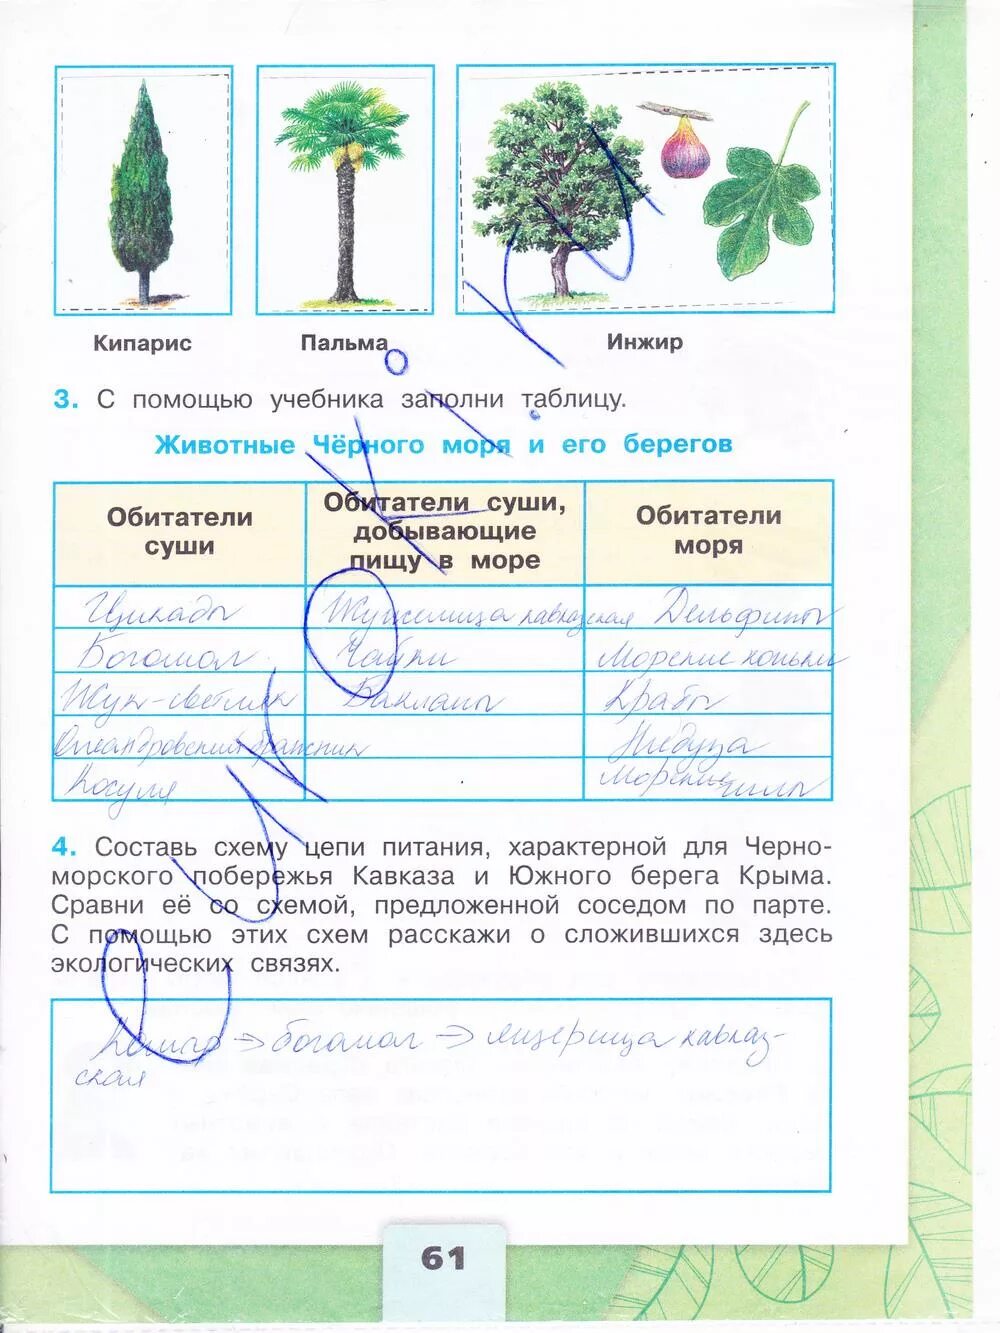 Кипарис
Пальма
Инжир
3. С помощью учебника заполни таблицу.
Животные Чёрного моря и его берегов
Обитатели суши
Обитатели суши, добывающие пищу в море
Обитатели моря
Цикады
Жужелица кавказская
Дельфины
Богомол
Чайки
Морские коньки
Жук-светляк
Бакланы
Крабы
Олеандровский бражник
Медуза
Косуля
Морские иглы
4. Составь схему цепи питания, характерной для Черно-
морского побережья Кавказа и Южного берега Крыма.
Сравни её со схемой, предложенной соседом по парте.
С помощью этих схем расскажи о сложившихся здесь
экологических связях.
Комар → богомол → ящерица кавказ-
ская
61